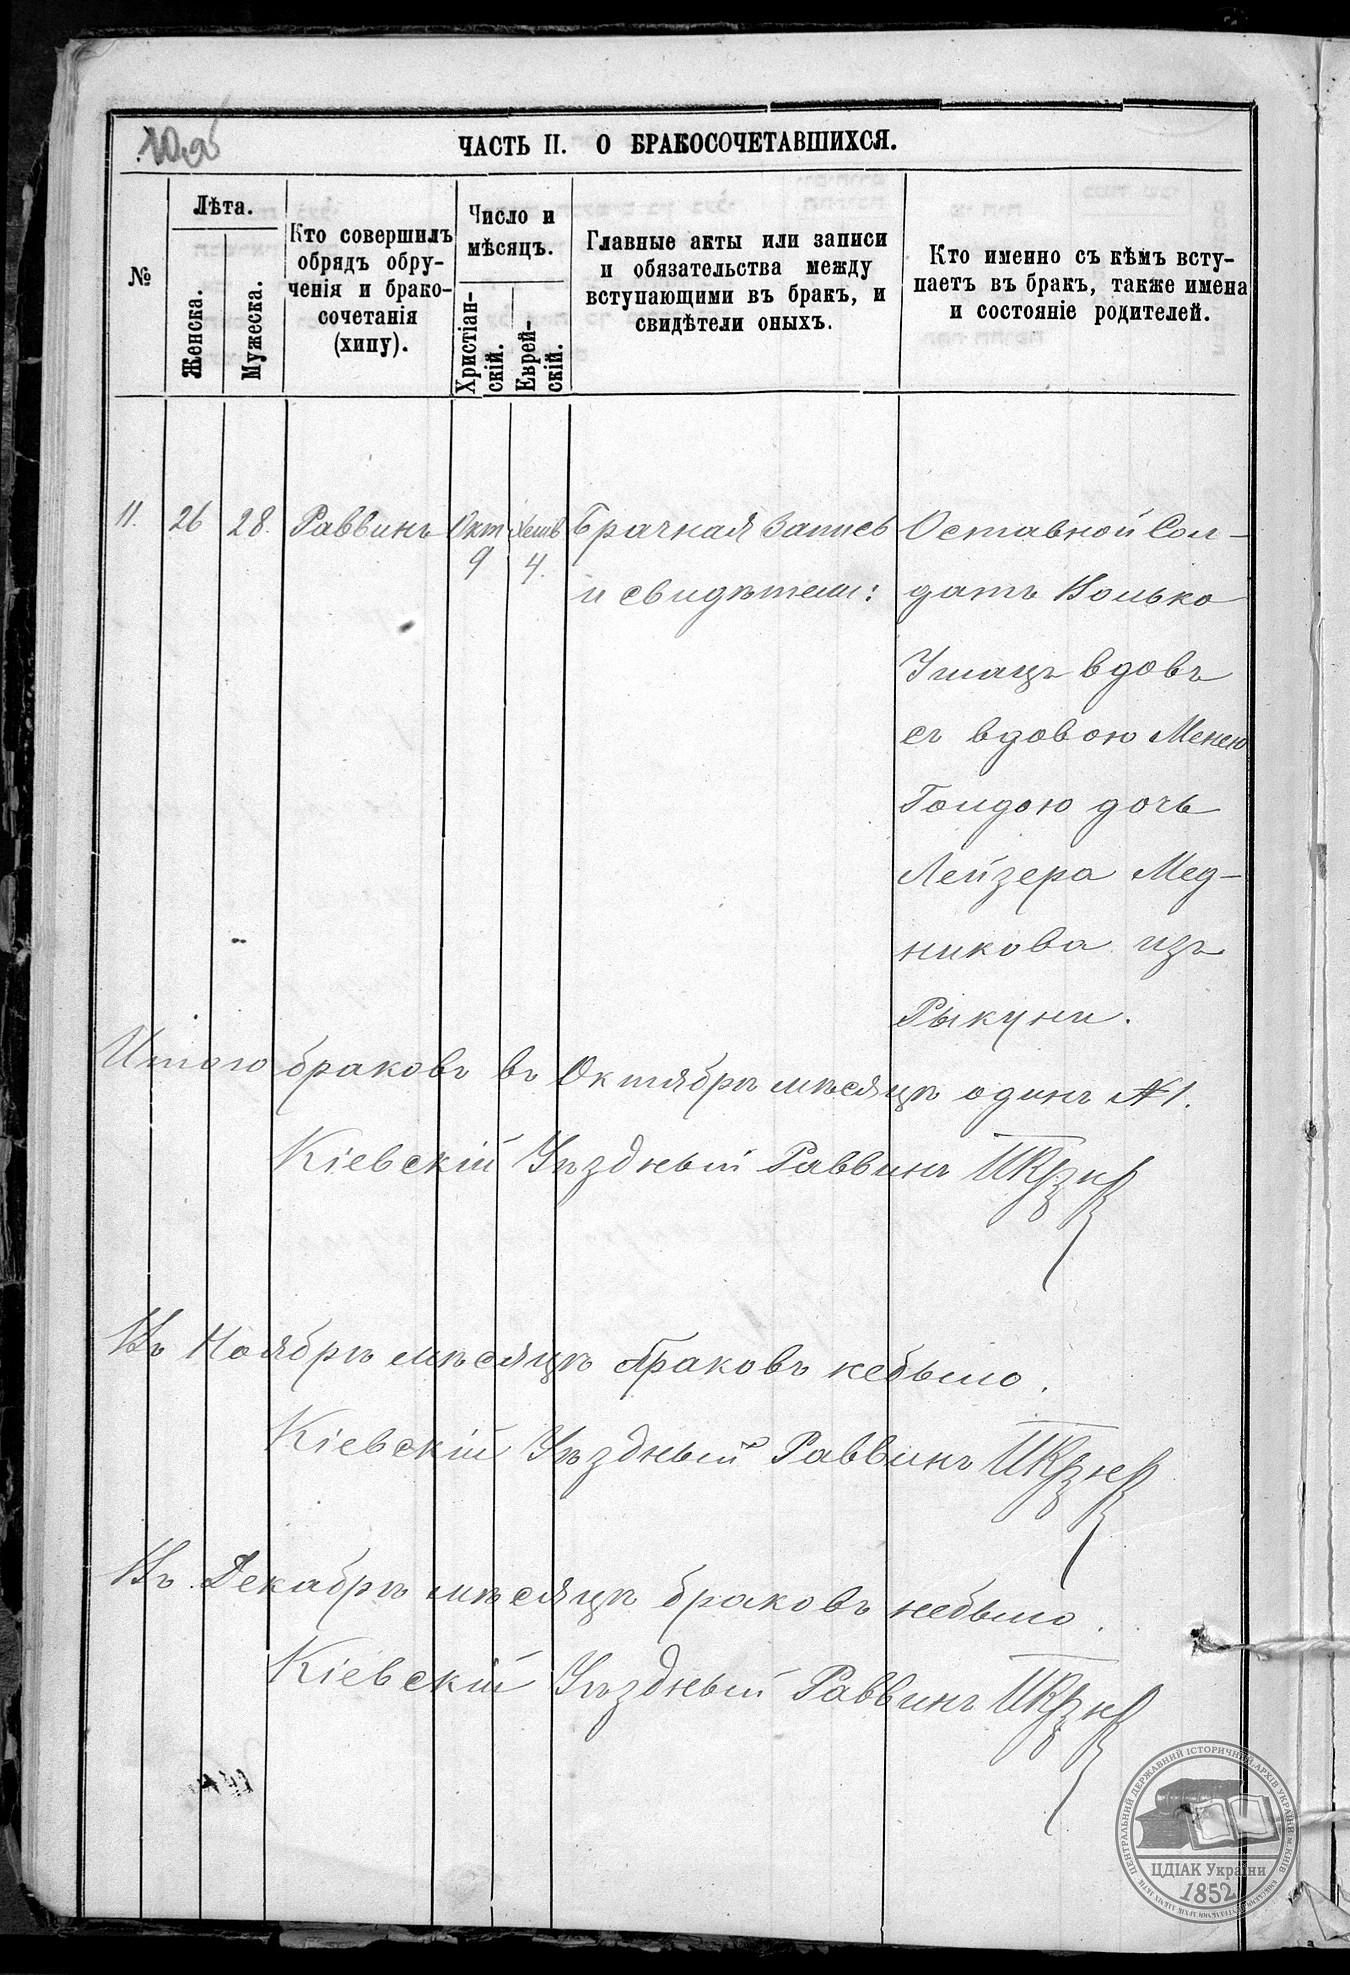 ЧАСТЬ II. О БРАКОСОЧЕТАВШИХСЯ.
№
Лѣта.
Женска.
Мужеска.
Кто совершилъ
обрядъ обру-
ченія и брако-
сочетанія
(хипу).
Число и
мѣсяцъ.
Христіан-
скій.
Еврей-
скій.
Главные акты или записи
и обязательства между
вступающими въ бракъ, и
свидѣтели оныхъ.
Кто именно съ кѣмъ всту-
паетъ въ бракъ, также имена
и состояніе родителей.
11. 26 28. Раввинъ Окт 9 Хешв 4.
Брачная Запись
и свидѣтели:
Оставной Сол-
датъ Волько
вдовъ
съ вдовою Менею
Голдою дочь
Лейзера Мед-
никова изъ
Рыкуни.
Итого браковъ въ Октябрѣ мѣсяцѣ одинъ №1.
Кіевскій Уѣздный Раввинъ
Въ Ноябрѣ мѣсяцѣ браковъ небыло.
Кіевскій Уѣздный Раввинъ
Въ Декабрѣ мѣсяцѣ браковъ небыло.
Кіевскій Уѣздный Раввинъ
ЦЕНТРАЛЬНИЙ ДЕРЖАВНИЙ ІСТОРИЧНИЙ АРХІВ УКРАЇНИ м. КИЇВ
ЦДІАК України
1852